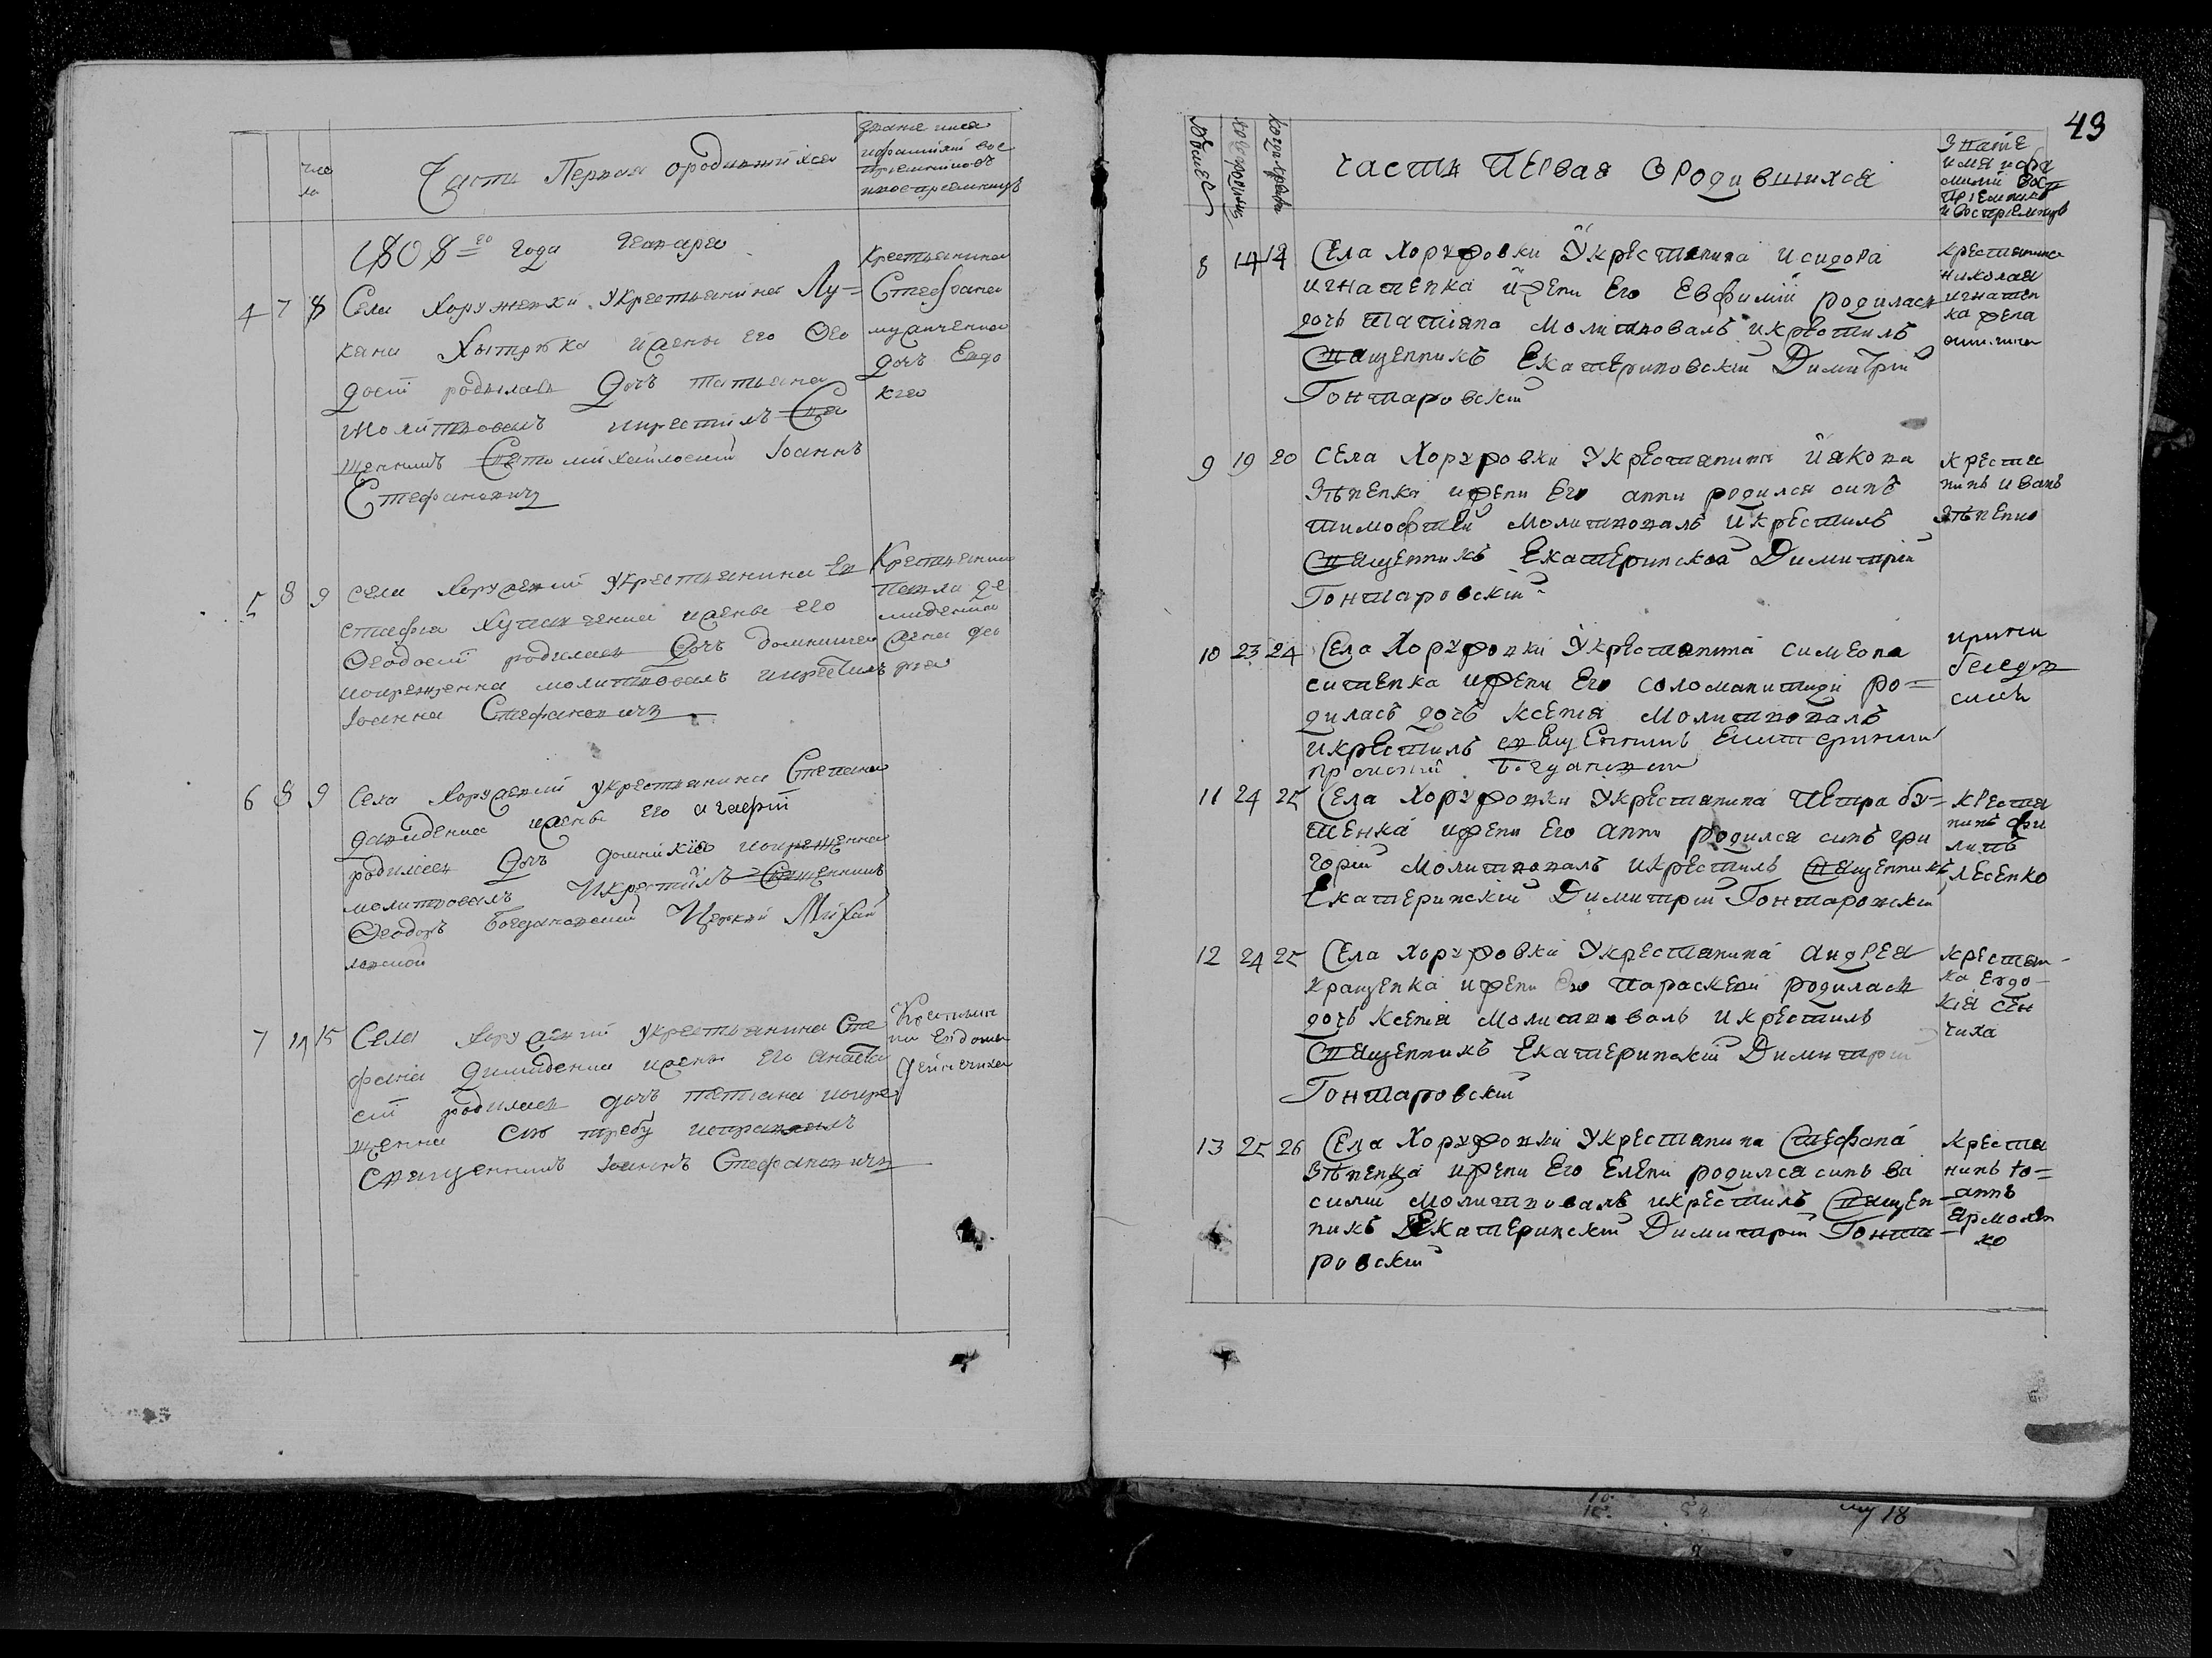 49
Часть Первая о родившихся
Званіе имя
и фамилія вос
пріемниковъ
и воспріемницъ
чис
ла
1808го года Генаря
4 7 8 Села Хоружевки у крестьянина Лу=
кана Хытрука и жены его Fео
досіи родилась Дочь татьяна
молитвовалъ и крестилъ Свя
щенникъ Свято михайловский Іоаннъ
Стефановичъ
Крестьянина
Стефана
дочь Евдо
кія
5 8 9 села Хоружевки у крестьянина Ев
стафия и жены его
Феодосіи родилась Дочь домникия
и окрещенна молитвовалъ и крестилъ
Іоаннъ Стефановичъ
Крестьянина
Павла де
миденка
жена
6 8 9 Села Хоружевки у крестьянина Степана
давиденка и жены его агафіи
родилась Дочь домникія и окрещенна
молитвовалъ и крестилъ Священникъ
Феодоръ Богдановский Церкви Михай
ловской
7 14 15 Села Хоружевки у крестьянина Сте
фана димиденка и жены его анаста
сіи родилась дочь татіана и окре
щенна сию требу исправлялъ
Священникъ Іоаннъ Стефановичъ
Крестьянин
ка Евдокия
Дейнечиха
Часть Первая О Родившихся
Званіе
имя и фа
милии Восп
пріемников
и Воспріемницъ
8 14 14 Села Хоружовки У крестянина Исидора
игнатенка и жени Его Евфиміи родилась
дочь татіяна молитвовалъ и крестилъ
Священникъ Екатериновскій Димитрій
Гонтаровскій
крестянина
николая
игнатен
ка жена
9 19 20 Села Хоружовки У крестянина Иякова
Зѣненка и жени Его анни родился синъ
тимофтей молитвовалъ и крестилъ
Священникъ Екатеринской Димитрій
Гонтаровскій
крестья
нинъ иванъ
Зѣненко
10 23 24 Села Хоружовки У крестянина симеона
ситенка и жени Его соломаниتиди ро=
дилась дочь ксенія молитвовалъ
и крестилъ священникъ
Богдановский
11 24 25 Села Хоружовки У крестянина Петра бу=
тенка и жени Его анни родился синъ гри
горій молитвовалъ и крестилъ Священникъ
Екатеринскій Димитрій Гонтаровскій
крестя
нинъ фи
липъ
лесенко
12 24 25 Села Хоружовки У крестянина Андрея
кращенка и жени Его параскеви родилась
дочь ксенія молитвовалъ и крестилъ
Священникъ Екатеринскій Димитрій
Гонтаровскій
крестян-
ка Евдо-
кія сен
чиха
13 25 26 Села Хоружовки У крестянина Стефана
Зѣненка и жени Его Елени родился синъ ва
силий молитвовалъ и крестилъ Священ
никъ Екатеринскій Димитрій Гонта
ровскій
крестя
нинъ Іо=
аннъ
Ярмолен
ко